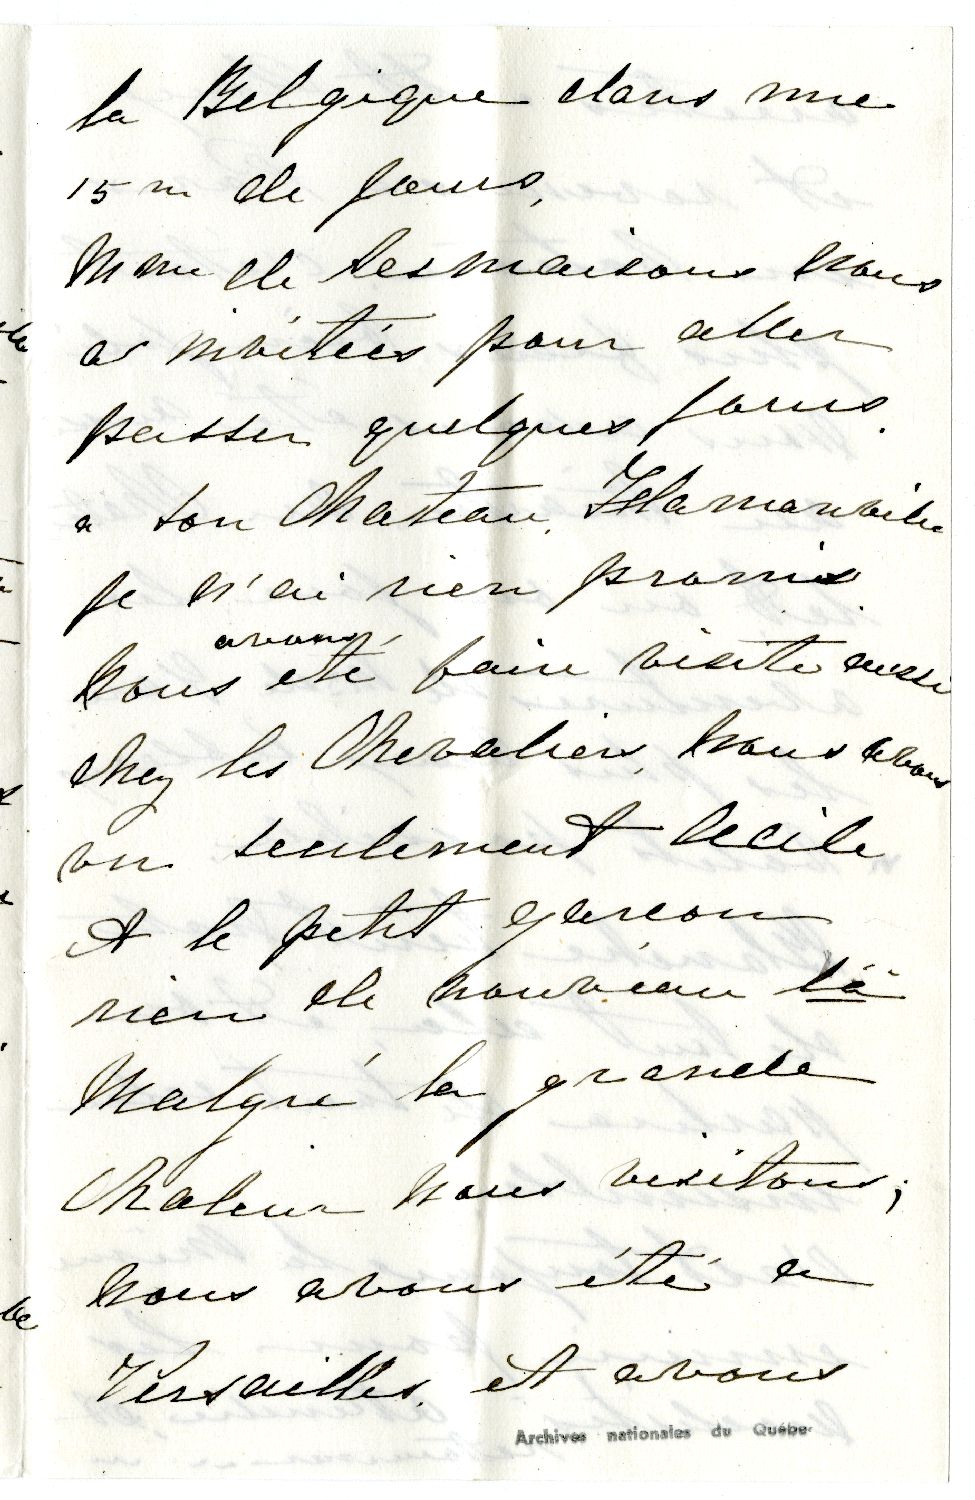 la Belgique dans une
15 ne de jours,
Mme de Lesmaisons nous
a invitées pour aller
passer quelques jours.
a son Chateau,
je n'ai rien promis
nous avons été faire visite aussi
chez les Chevaliers, nous avons
vu seulement Cecile
et le petit garcon
rien de nouveau là
Malgré la grande
Chaleur nous visitons;
nous avons été a
Versailles, et avons
Archives nationales du Québec